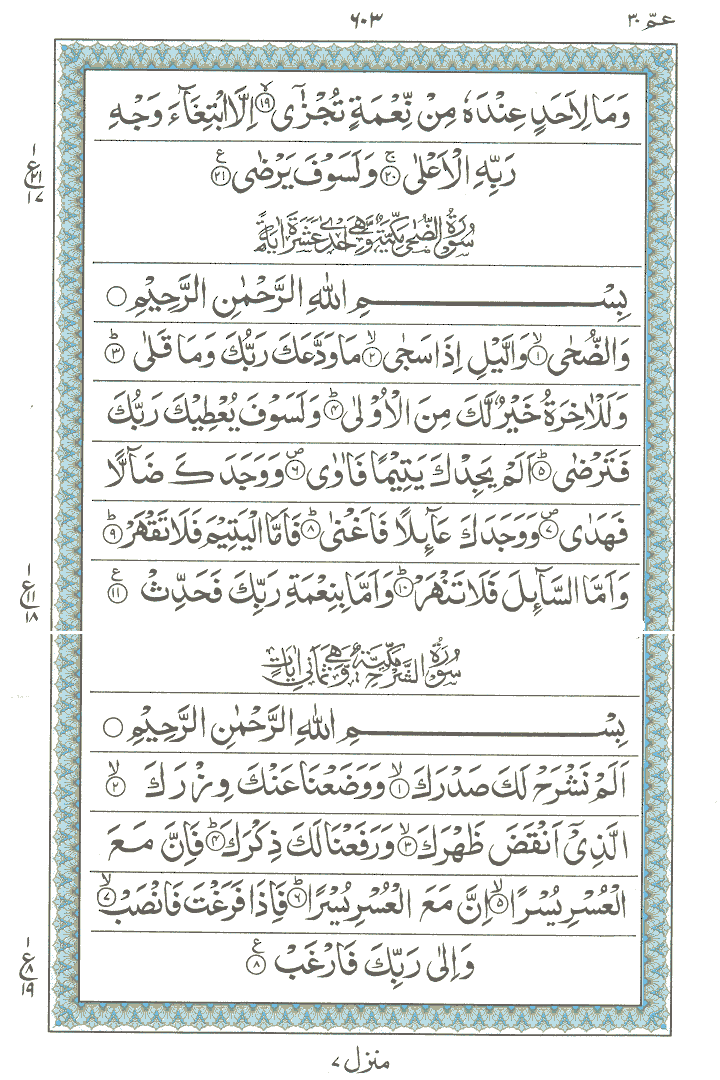 عمّ ٣٠
٦٠٣
وَمَا لِاَحَدٍ عِنْدَهٗ مِنْ نِّعْمَةٍ تُجْزٰٓى ۙ﴿١٩﴾ اِلَّا ابْتِغَآءَ وَجْهِ
رَبِّهِ الْاَعْلٰى ۚ﴿٢٠﴾ وَلَسَوْفَ يَرْضٰى ﴿٢١﴾ ع
١
ع ٢١
١٧
سُوْرَةُ الضُّحٰى مَكِّيَّةٌ وَّهِىَ اِحْدٰى عَشَرَةَ اٰيَةً
بِسْمِ اللّٰهِ الرَّحْمٰنِ الرَّحِيْمِ
وَالضُّحٰى ۙ﴿١﴾ وَالَّيْلِ اِذَا سَجٰى ۙ﴿٢﴾ مَا وَدَّعَكَ رَبُّكَ وَمَا قَلٰى ؕ﴿٣﴾
وَلَلْاٰخِرَةُ خَيْرٌ لَّكَ مِنَ الْاُوْلٰى ؕ﴿٤﴾ وَلَسَوْفَ يُعْطِيْكَ رَبُّكَ
فَتَرْضٰى ؕ﴿٥﴾ اَلَمْ يَجِدْكَ يَتِيْمًا فَاٰوٰى ۖ﴿٦﴾ وَوَجَدَكَ ضَآلًّا
فَهَدٰى ۖ﴿٧﴾ وَوَجَدَكَ عَآئِلًا فَاَغْنٰى ؕ﴿٨﴾ فَاَمَّا الْيَتِيْمَ فَلَا تَقْهَرْ ؕ﴿٩﴾
وَاَمَّا السَّآئِلَ فَلَا تَنْهَرْ ؕ﴿١٠﴾ وَاَمَّا بِنِعْمَةِ رَبِّكَ فَحَدِّثْ ﴿١١﴾ ع
١
ع ١١
١٨
سُوْرَةُ الشَّرْحِ مَكِّيَّةٌ وَّهِىَ ثَمَانِىْ اٰيَاتٍ
بِسْمِ اللّٰهِ الرَّحْمٰنِ الرَّحِيْمِ
اَلَمْ نَشْرَحْ لَكَ صَدْرَكَ ۙ﴿١﴾ وَوَضَعْنَا عَنْكَ وِزْرَكَ ۙ﴿٢﴾
الَّذِىْٓ اَنْقَضَ ظَهْرَكَ ۙ﴿٣﴾ وَرَفَعْنَا لَكَ ذِكْرَكَ ؕ﴿٤﴾ فَاِنَّ مَعَ
الْعُسْرِ يُسْرًا ۙ﴿٥﴾ اِنَّ مَعَ الْعُسْرِ يُسْرًا ؕ﴿٦﴾ فَاِذَا فَرَغْتَ فَانْصَبْ ۙ﴿٧﴾
وَاِلٰى رَبِّكَ فَارْغَبْ ﴿٨﴾ ع
١
ع ٨
١٩
منزل ٧